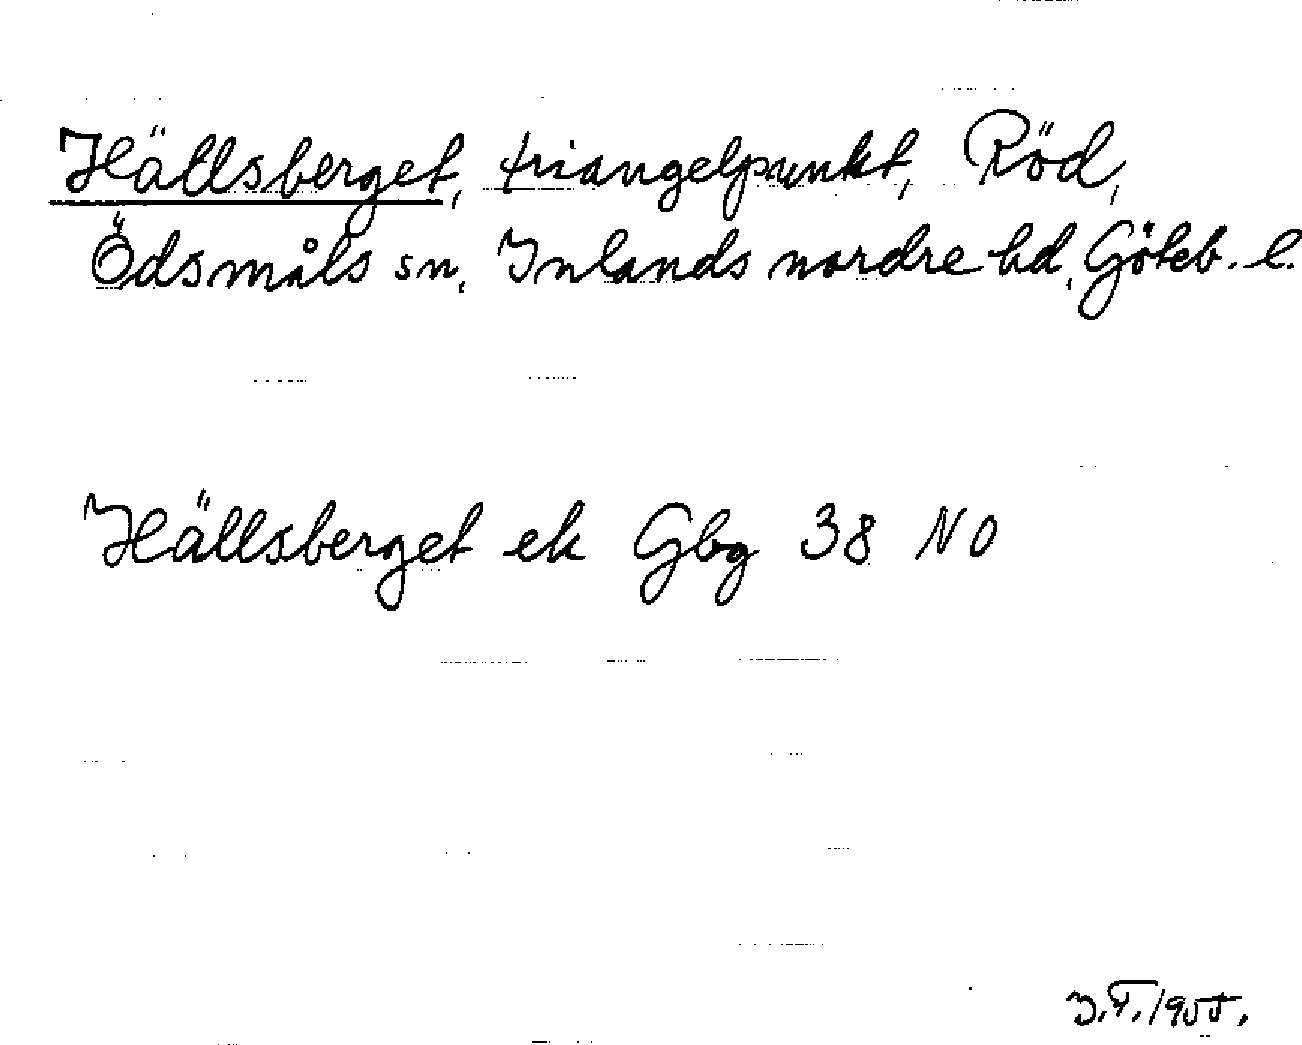 Hällsberget, triangelpunkt, Röd,
Ödsmåls sn, Inlands nordre hd, Göteb. l.
Hällsberget ek Gbg 38 NO
1955.